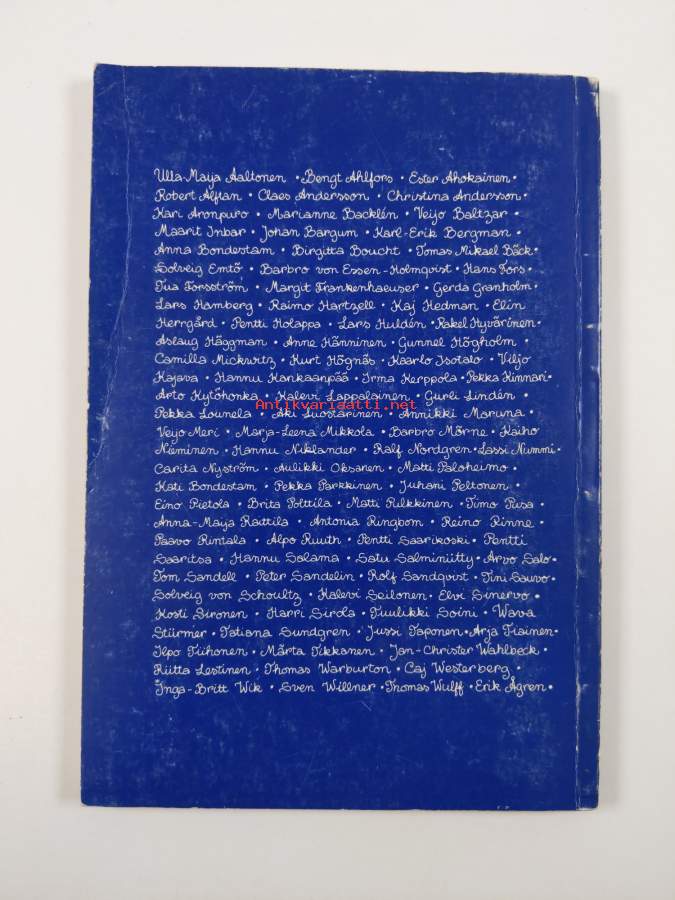 Ulla-Maija Aaltonen • Bengt Ahlfors • Ester Ahokainen •
Robert Alftan • Claes Andersson • Christina Andersson •
Kari Aronpuro • Marianne Backlén • Veijo Baltzar •
Maarit Inbar • Johan Bargum • Karl-Erik Bergman •
Anna Bondestam • Birgitta Boucht • Tomas Mikael Bäck •
Solveig Emtö • Barbro von Essen-Holmqvist • Hans Fors •
Tua Forsström • Margit Frankenhaeuser • Gerda Granholm •
Lars Hamberg • Raimo Hartzell • Kaj Hedman • Elin
Herrgård • Pentti Holappa • Lars Huldén • Rakel Hyvärinen •
Aslaug Häggman • Anne Hänninen • Gunnel Högholm •
Camilla Mickwitz • Kurt Högnäs • Kaarlo Isotalo • Viljo
Kajava • Hannu Kankaanpää • Irma Kerppola • Pekka Kinnari •
Arto Kytöhonka • Kalevi Lappalainen • Gurli Lindén •
Antikvariaatti.net
Pekka Lounela • Aki Luostarinen • Annikki Maruna •
Veijo Meri • Marja-Leena Mikkola • Barbro Mörne • Kaiho
Nieminen • Hannu Niklander • Ralf Nordgren • Lassi Nummi •
Carita Nyström • Aulikki Oksanen • Matti Paloheimo •
Kati Bondestam • Pekka Parkkinen • Juhani Peltonen •
Eino Pietola • Brita Polttila • Matti Pulkkinen • Timo Pusa •
Anna-Maija Raittila • Antonia Ringbom • Reino Rinne •
Paavo Rintala • Alpo Ruuth • Pentti Saarikoski • Pentti
Saaritsa • Hannu Salama • Satu Salminiitty • Arvo Salo •
Tom Sandell • Peter Sandelin • Rolf Sandqvist • Tini Sauvo •
Solveig von Schoultz • Kalevi Seilonen • Elvi Sinervo •
Kosti Sironen • Harri Sirola • Tuulikki Soini • Wava
Stürmer • Tatiana Sundgren • Jussi Taponen • Arja Tiainen •
Ilpo Tiihonen • Märta Tikkanen • Jan-Christer Wahlbeck •
Riitta Lestinen • Thomas Warburton • Caj Westerberg •
Inga-Britt Wik • Sven Willner • Thomas Wulff • Erik Ågren •